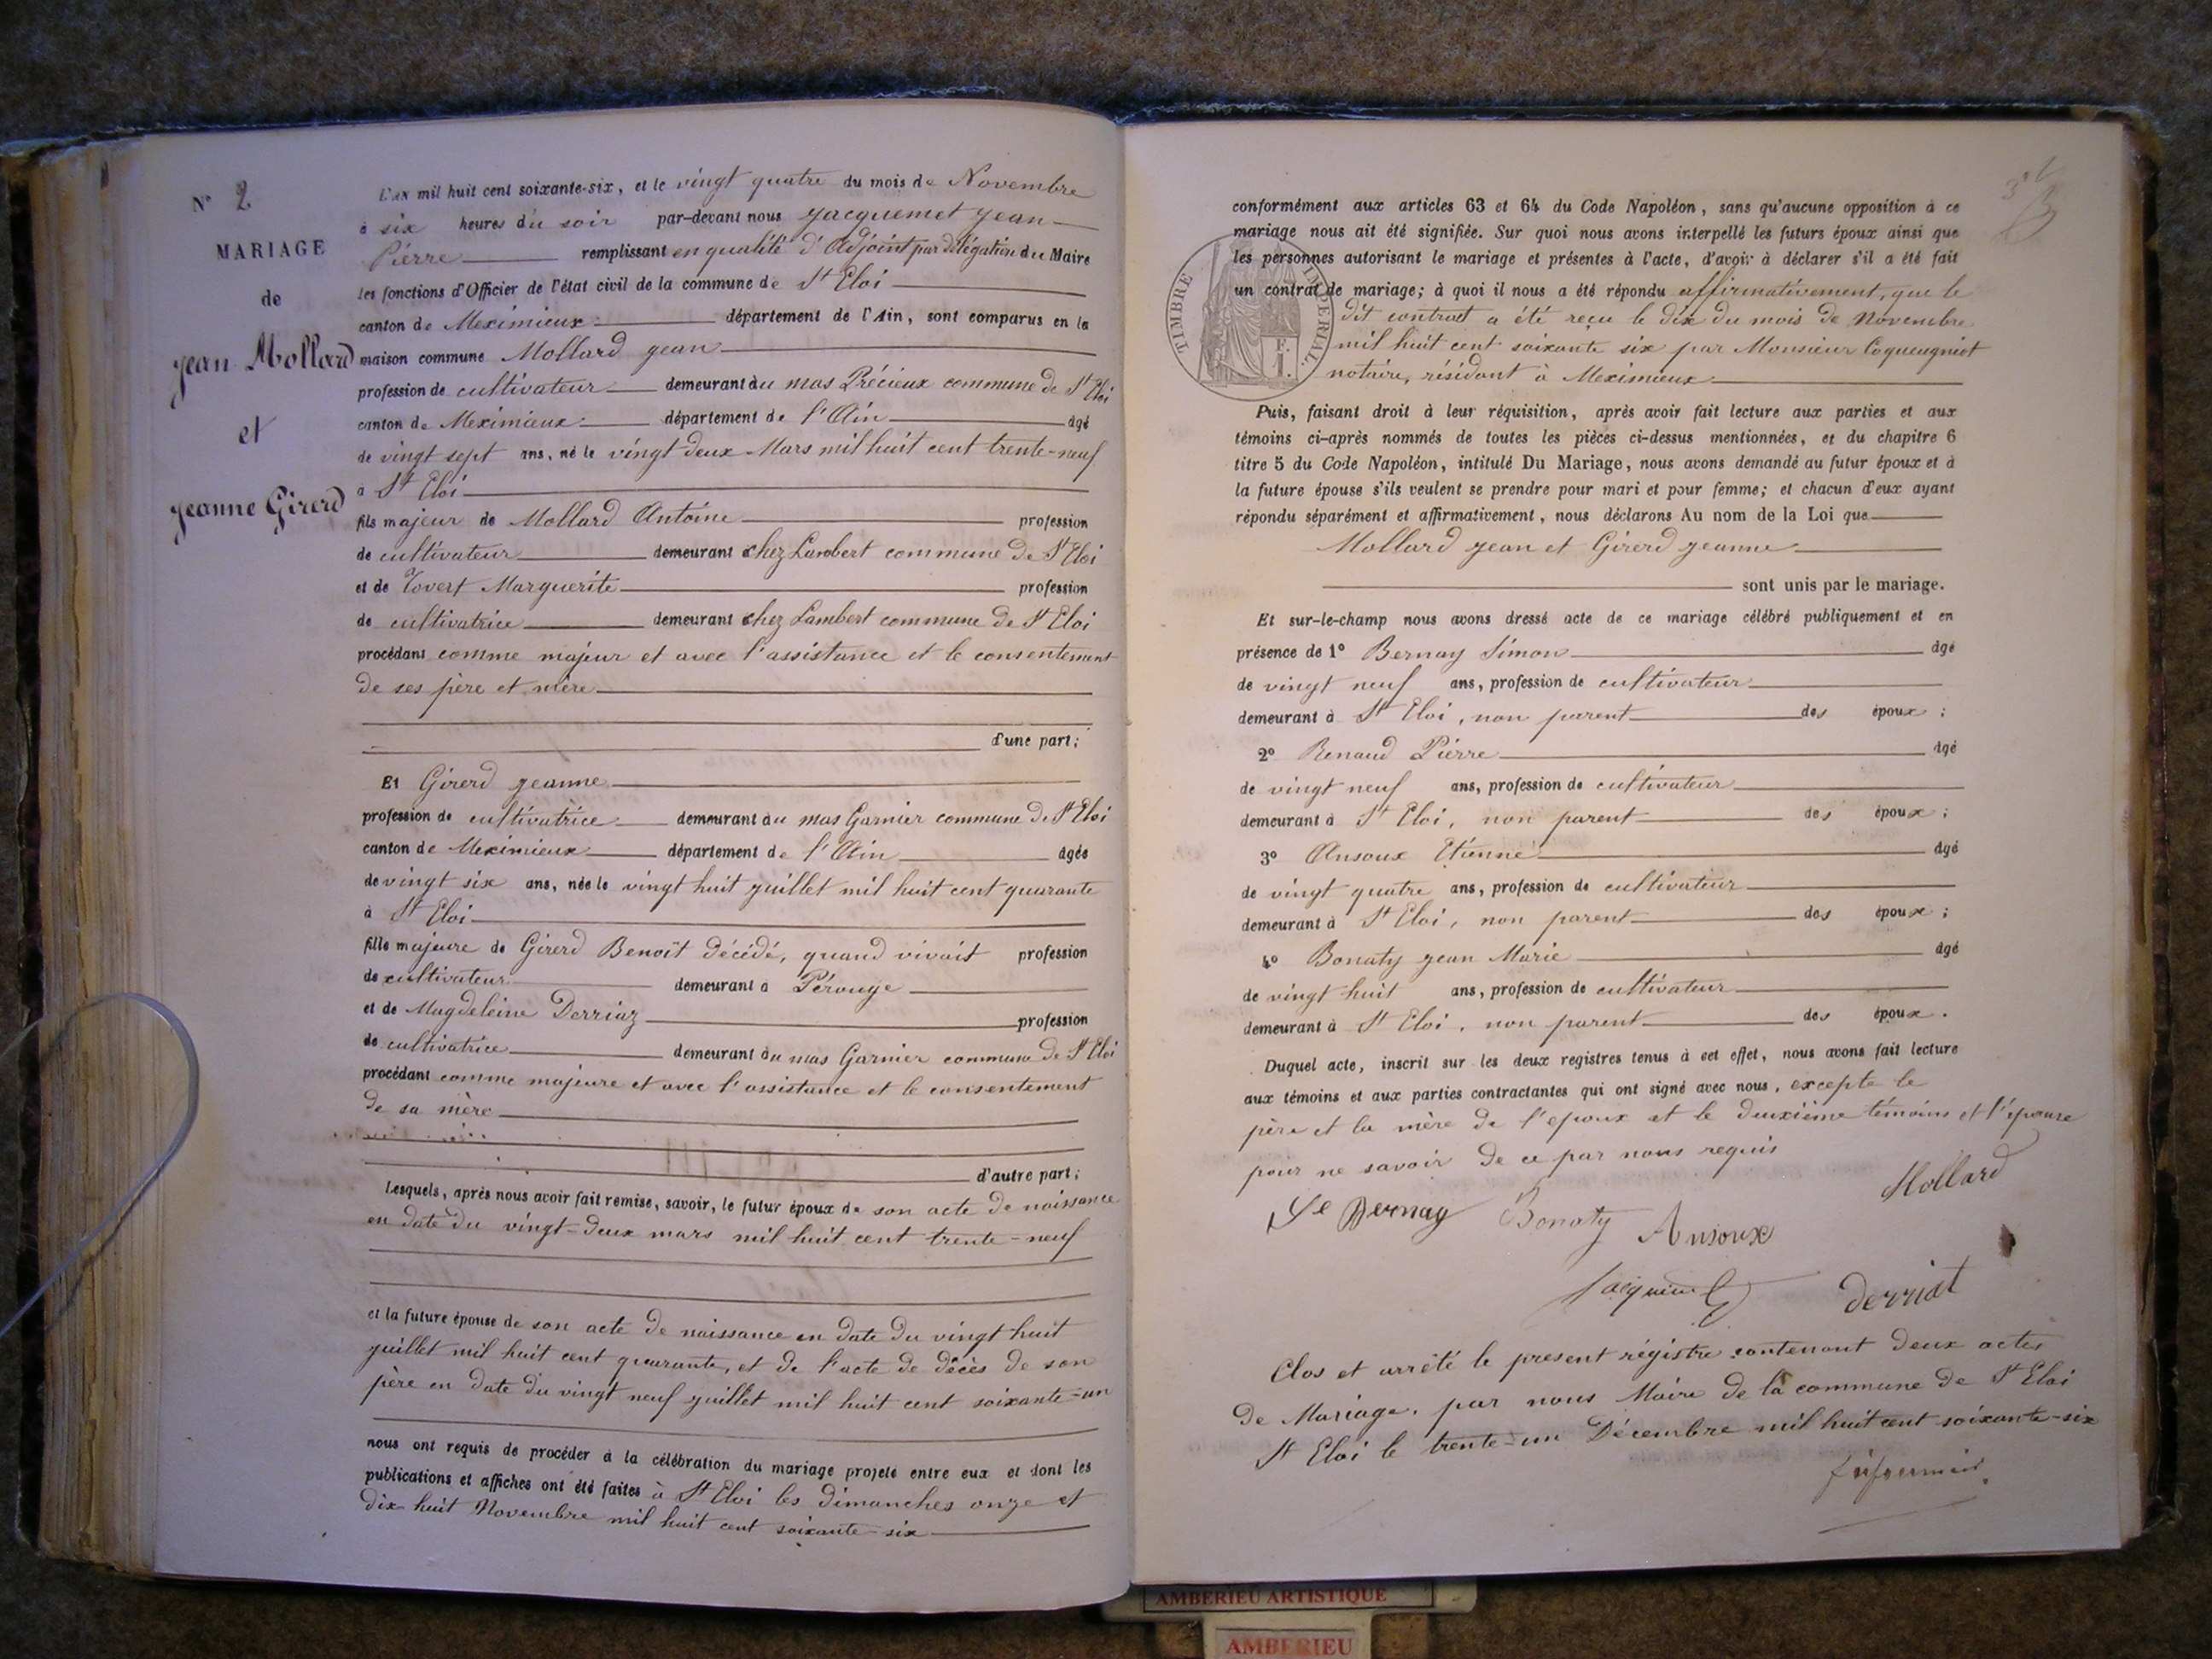 N° 2
MARIAGE
de
Jean Mollard
et
Jeanne Girerd
L'AN mil huit cent soixante-six, et le vingt quatre du mois de Novembre
à six heures du soir par-devant nous Jacquemet Jean
Pierre remplissant en qualité d'Adjoint par délégation du Maire
les fonctions d'Officier de l'état civil de la commune de St Eloi
canton de Meximieux département de l'Ain, sont comparus en la
maison commune Mollard Jean
profession de cultivateur demeurant au mas Précieux commune de St Eloi
canton de Meximieux département de l'Ain âgé
de vingt sept ans, né le vingt deux Mars mil huit cent trente-neuf
à St Eloi
fils majeur de Mollard Antoine profession
de cultivateur demeurant chez Lambert commune de St Eloi
et de Tovert Marguerite profession
de cultivatrice demeurant chez Lambert commune de St Eloi
procédant comme majeur et avec l'assistance et le consentement
de ses père et mère
d'une part;
Et Girerd Jeanne
profession de cultivatrice demeurant au mas Garnier commune de St Eloi
canton de Meximieux département de l'Ain âgée
de vingt six ans, née le vingt huit juillet mil huit cent quarante
à St Eloi
fille majeure de Girerd Benoît décédé, quand vivait profession
de cultivateur demeurant à Pérouge
et de Magdeleine Derriaz profession
de cultivatrice demeurant au mas Garnier commune de St Eloi
procédant comme majeure et avec l'assistance et le consentement
de sa mère
d'autre part;
Lesquels, après nous avoir fait remise, savoir, le futur époux de son acte de naissance
en date du vingt-deux mars mil huit cent trente-neuf
et la future épouse de son acte de naissance en date du vingt huit
juillet mil huit cent quarante, et de l'acte de décès de son
père en date du vingt neuf juillet mil huit cent soixante-un
nous ont requis de procéder à la célébration du mariage projeté entre eux et dont les
publications et affiches ont été faites à St Eloi les dimanches onze et
dix-huit Novembre mil huit cent soixante-six
conformément aux articles 63 et 64 du Code Napoléon, sans qu'aucune opposition à ce
mariage nous ait été signifiée. Sur quoi nous avons interpellé les futurs époux ainsi que
les personnes autorisant le mariage et présentes à l'acte, d'avoir à déclarer s'il a été fait
un contrat de mariage; à quoi il nous a été répondu affirmativement, que le
dit contrat a été reçu le dix du mois de Novembre
mil huit cent soixante six par Monsieur Coqueugniot
notaire, résidant à Meximieux
TIMBRE IMPERIAL
F.
1.
Puis, faisant droit à leur réquisition, après avoir fait lecture aux parties et aux
témoins ci-après nommés de toutes les pièces ci-dessus mentionnées, et du chapitre 6
titre 5 du Code Napoléon, intitulé Du Mariage, nous avons demandé au futur époux et à
la future épouse s'ils veulent se prendre pour mari et pour femme; et chacun d'eux ayant
répondu séparément et affirmativement, nous déclarons Au nom de la Loi que
Mollard Jean et Girerd Jeanne
sont unis par le mariage.
Et sur-le-champ nous avons dressé acte de ce mariage célébré publiquement et en
présence de 1° Bernay Simon âgé
de vingt neuf ans, profession de cultivateur
demeurant à St Eloi, non parent des époux;
2° Renaud Pierre âgé
de vingt neuf ans, profession de cultivateur
demeurant à St Eloi, non parent des époux;
3° Ansoux Etienne âgé
de vingt quatre ans, profession de cultivateur
demeurant à St Eloi, non parent des époux;
4° Bonaty Jean Marie âgé
de vingt huit ans, profession de cultivateur
demeurant à St Eloi, non parent des époux.
Duquel acte, inscrit sur les deux registres tenus à cet effet, nous avons fait lecture
aux témoins et aux parties contractantes qui ont signé avec nous, excepte le
père et la mère de l'epoux et le deuxième témoins et l'épouse
pour ne savoir de ce par nous requis
Bernay Bonaty Ansoux Mollard
Jacquemet derriat
Clos et arrêté le present régistre contenant deux actes
de Mariage, par nous Maire de la commune de St Eloi
St Eloi le trente-un Décembre mil huit cent soixante-six
AMBERIEU ARTISTIQUE
AMBERIEU